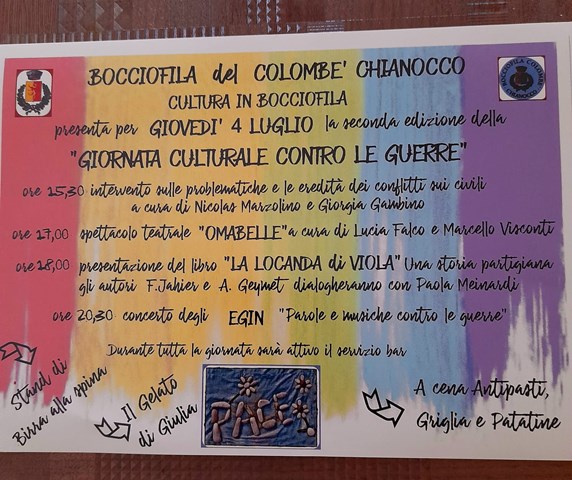 BOCCIOFILA del COLOMBE' CHIANOCCO
CULTURA IN BOCCIOFILA
presenta per GIOVEDI' 4 LUGLIO la seconda edizione della
"GIORNATA CULTURALE CONTRO LE GUERRE"
ore 15,30 intervento sulle problematiche e le eredità dei conflitti sui civili
a cura di Nicolas Marzolino e Giorgia Gambino
ore 17,00 spettacolo teatrale "OMABELLE" a cura di Lucia Falco e Marcello Visconti
ore 18,00 presentazione del libro "LA LOCANDA di VIOLA" Una storia partigiana
gli autori F.Jahier e A. Geymet dialogheranno con Paola Meinardi
ore 20,30 concerto degli EGIN "Parole e musiche contro le guerre"
Durante tutta la giornata sarà attivo il servizio bar
Stand di
Birra alla spina
Il Gelato
di Giulia
PACE
A cena Antipasti,
Griglia e Patatine